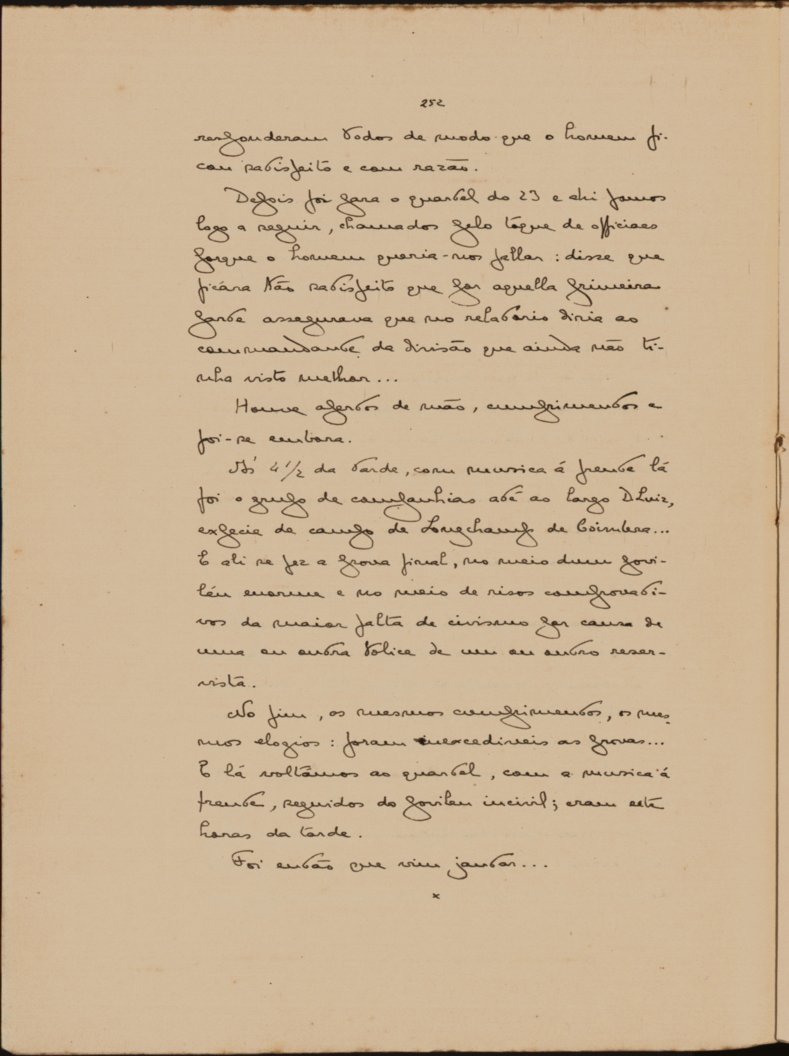 252
responderam todos de modo que o homem fi-
cou satisfeito e com razão.
Depois foi para o quartel do 23 e ahi fomos
logo a seguir, chamados pelo tóque de officiaes
porque o homem queria-nos fallar: disse que
ficára tão satisfeito que por aquella primeira
parte assegurava que no relatorio diria ao
commandante da divisão que ainda não ti-
nha visto melhor...
Houve apertos de mão, cumprimentos e
foi-se embora.
Ás 4 1/2 da tarde, com musica á frente lá
foi o grupo de companhias até ao largo D. Luiz,
especie de campo de Longchamp de Coimbra...
E ali se fez a prova final, no meio dum povi-
léu enorme e no meio de risos comprovati-
vos da maior falta de civismo por causa de
uma ou outra tolice de um ou outro reser-
vista.
No fim, os mesmos cumprimentos, os mes-
mos elogios: foram inexcediveis as provas...
E lá voltámos ao quartel, com a musica á
frente, seguidos do povileu incivil; eram sete
horas da tarde.
Foi então que vim jantar...
x